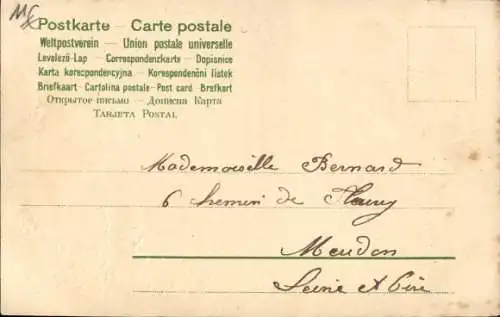 Postkarte – Carte postale
Weltpostverein – Union postale universelle
Levelező-Lap – Correspondenzkarte – Dopisnice
Karta korespondencyjna – Korespondenční lístek
Briefkaart – Cartolina postale – Post card – Brefkort
Открытое письмо – Дописна Карта
Tarjeta Postal
Mademoiselle Bernard
6 chemin de Fleury
Meudon
Seine et Oise